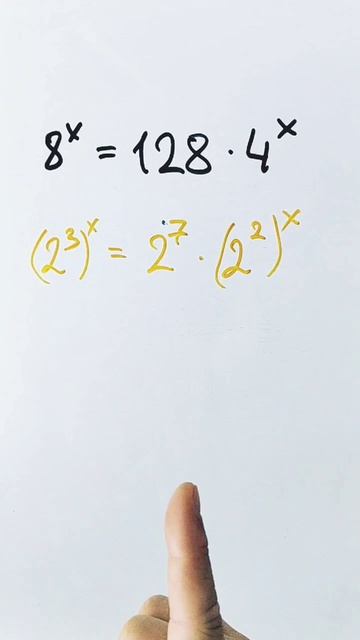 8ˣ = 128 · 4ˣ
(2³)ˣ = 2⁷ · (2²)ˣ